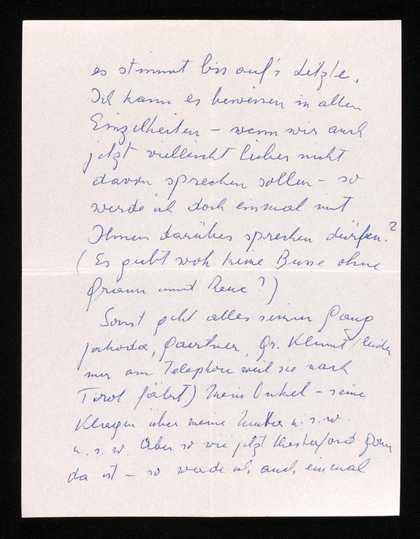 es stimmt bis auf's Letzte.
Ich kann es beweisen in allen
Einzelheiten – wenn wir auch
jetzt vielleicht lieber nicht
davon sprechen sollen – so
werde ich doch einmal mit
Ihnen darüber sprechen dürfen?
(Es gibt wohl keine Busse ohne
und Reue?)
Sonst geht alles seinen Gang
Jahoda, Gaertner, Dr. Klimt (leider
nur am Telephon weil sie nach
Tirol fährt) mein Onkel – seine
Klagen über meine Mutter u.s.w.
u.s.w. Aber so wie jetzt
da ist – so werde ich auch einmal